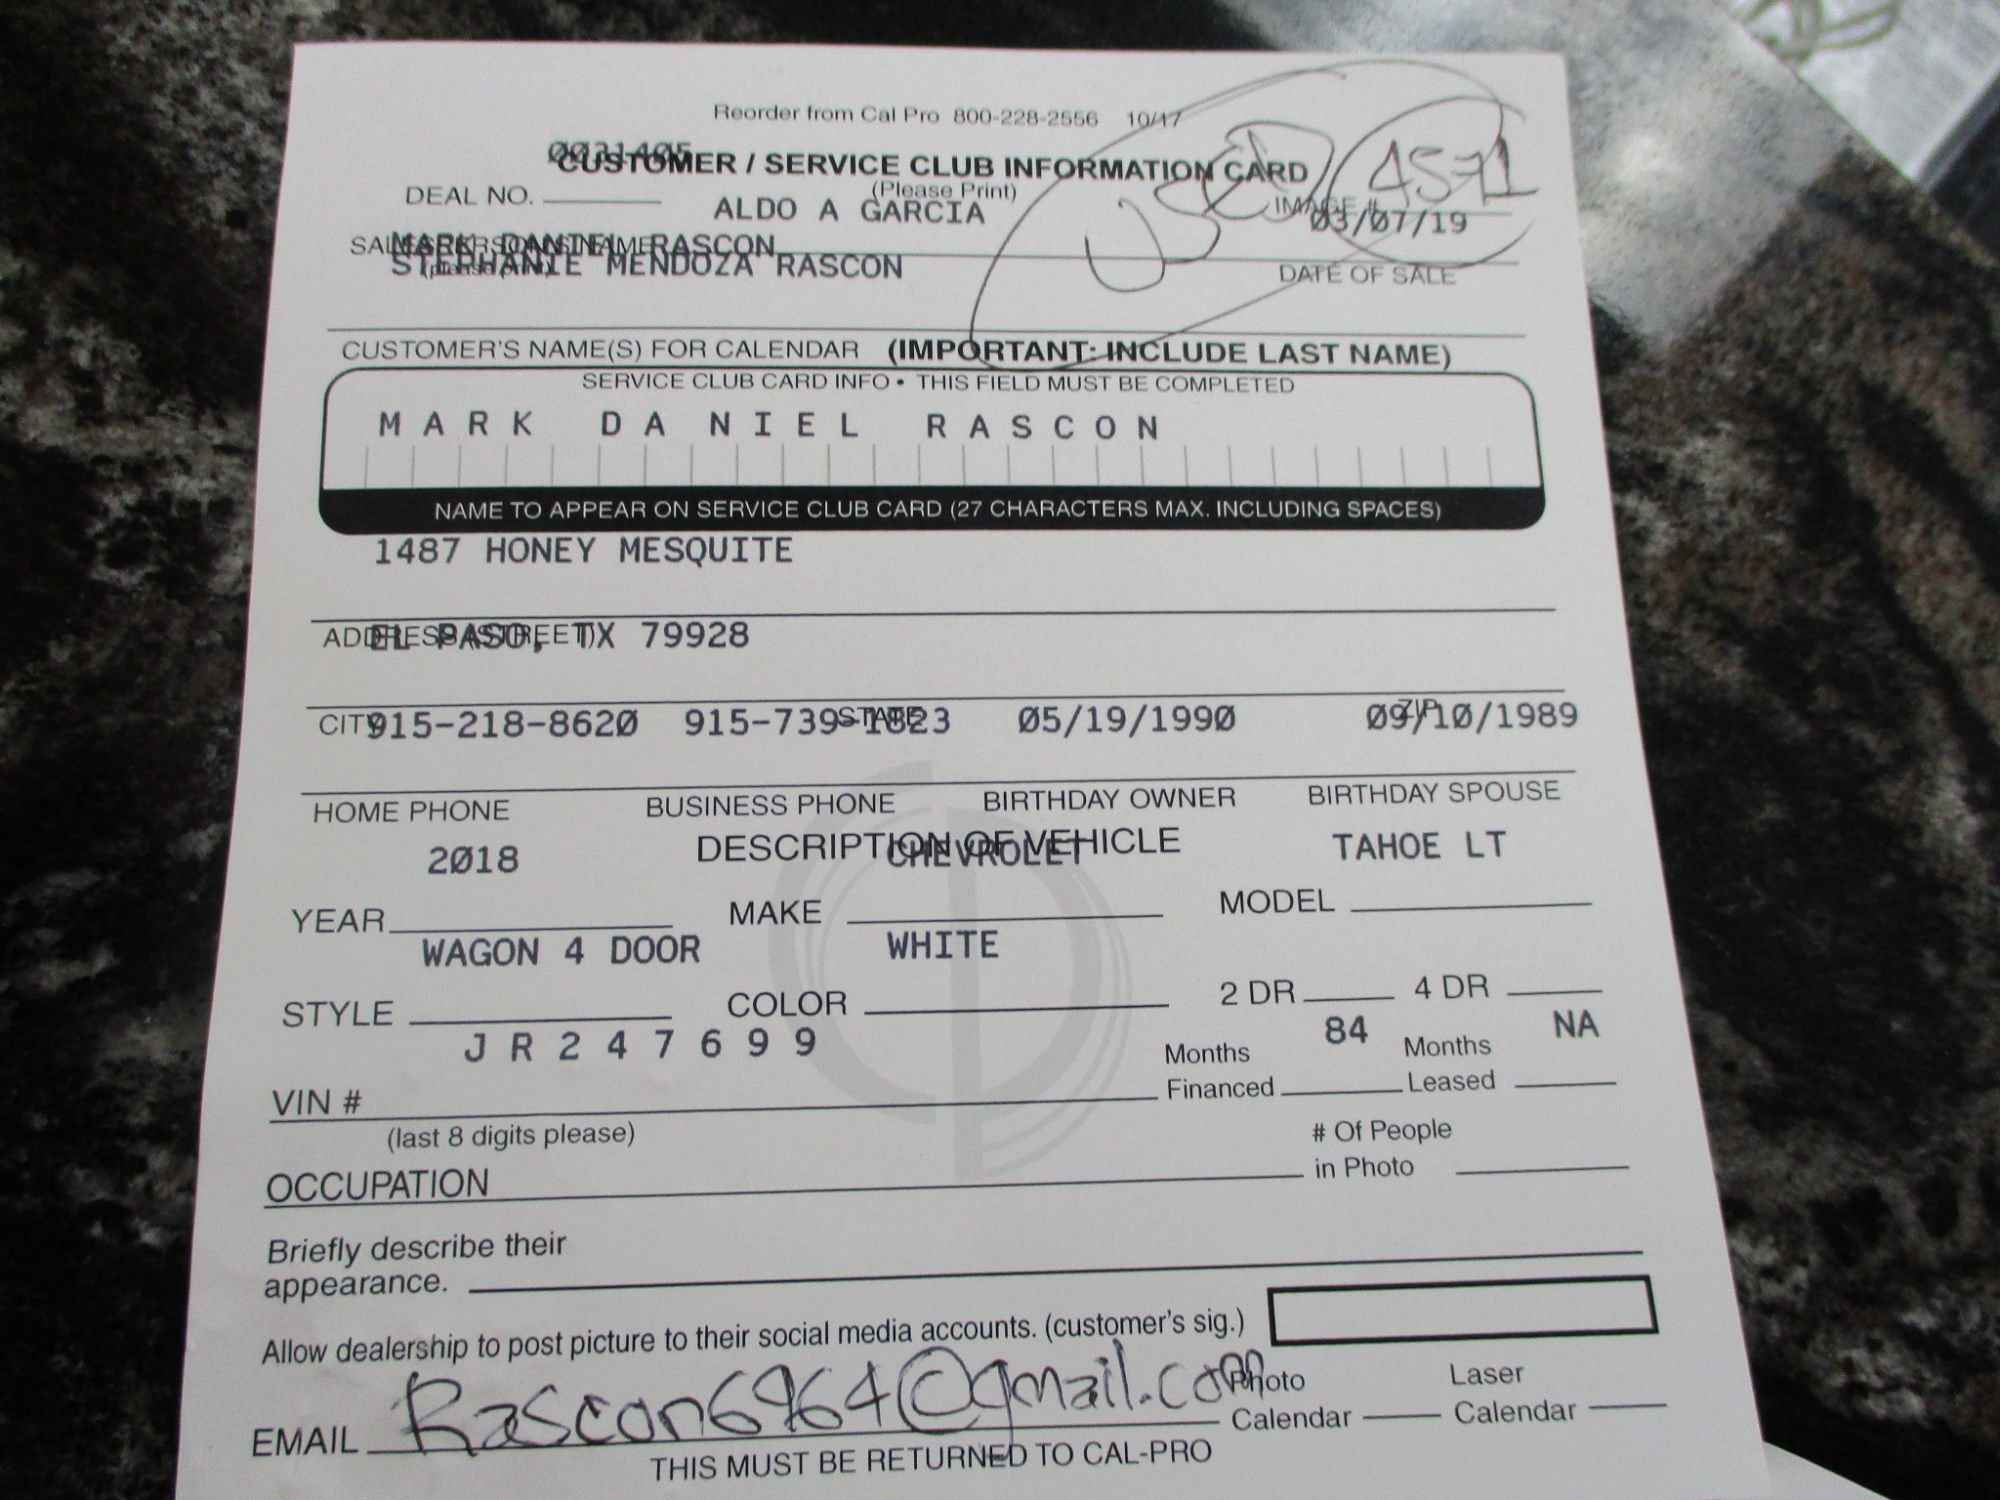 Reorder from Cal Pro 800-228-2556 10/17
0031405
CUSTOMER / SERVICE CLUB INFORMATION CARD
(Please Print)
USED 4571
DEAL NO.
IMAGE #
ALDO A GARCIA 03/07/19
SALESPERSON'S NAME
(please print)
MARK DANIEL RASCON
STEPHANIE MENDOZA RASCON
DATE OF SALE
CUSTOMER'S NAME(S) FOR CALENDAR (IMPORTANT: INCLUDE LAST NAME)
SERVICE CLUB CARD INFO • THIS FIELD MUST BE COMPLETED
MARK DANIEL RASCON
NAME TO APPEAR ON SERVICE CLUB CARD (27 CHARACTERS MAX. INCLUDING SPACES)
1487 HONEY MESQUITE
ADDRESS (STREET)
EL PASO, TX 79928
CITY STATE ZIP
915-218-8620 915-739-1823 05/19/1990 09/10/1989
HOME PHONE BUSINESS PHONE BIRTHDAY OWNER BIRTHDAY SPOUSE
DESCRIPTION OF VEHICLE
2018 CHEVROLET TAHOE LT
YEAR MAKE MODEL
WAGON 4 DOOR WHITE
STYLE COLOR 2 DR 4 DR
JR247699 84 NA
VIN # Months Financed Months Leased
(last 8 digits please)
OCCUPATION # Of People in Photo
Briefly describe their
appearance.
Allow dealership to post picture to their social media accounts. (customer's sig.)
EMAIL Rascon6964@gmail.com Photo Calendar Laser Calendar
THIS MUST BE RETURNED TO CAL-PRO